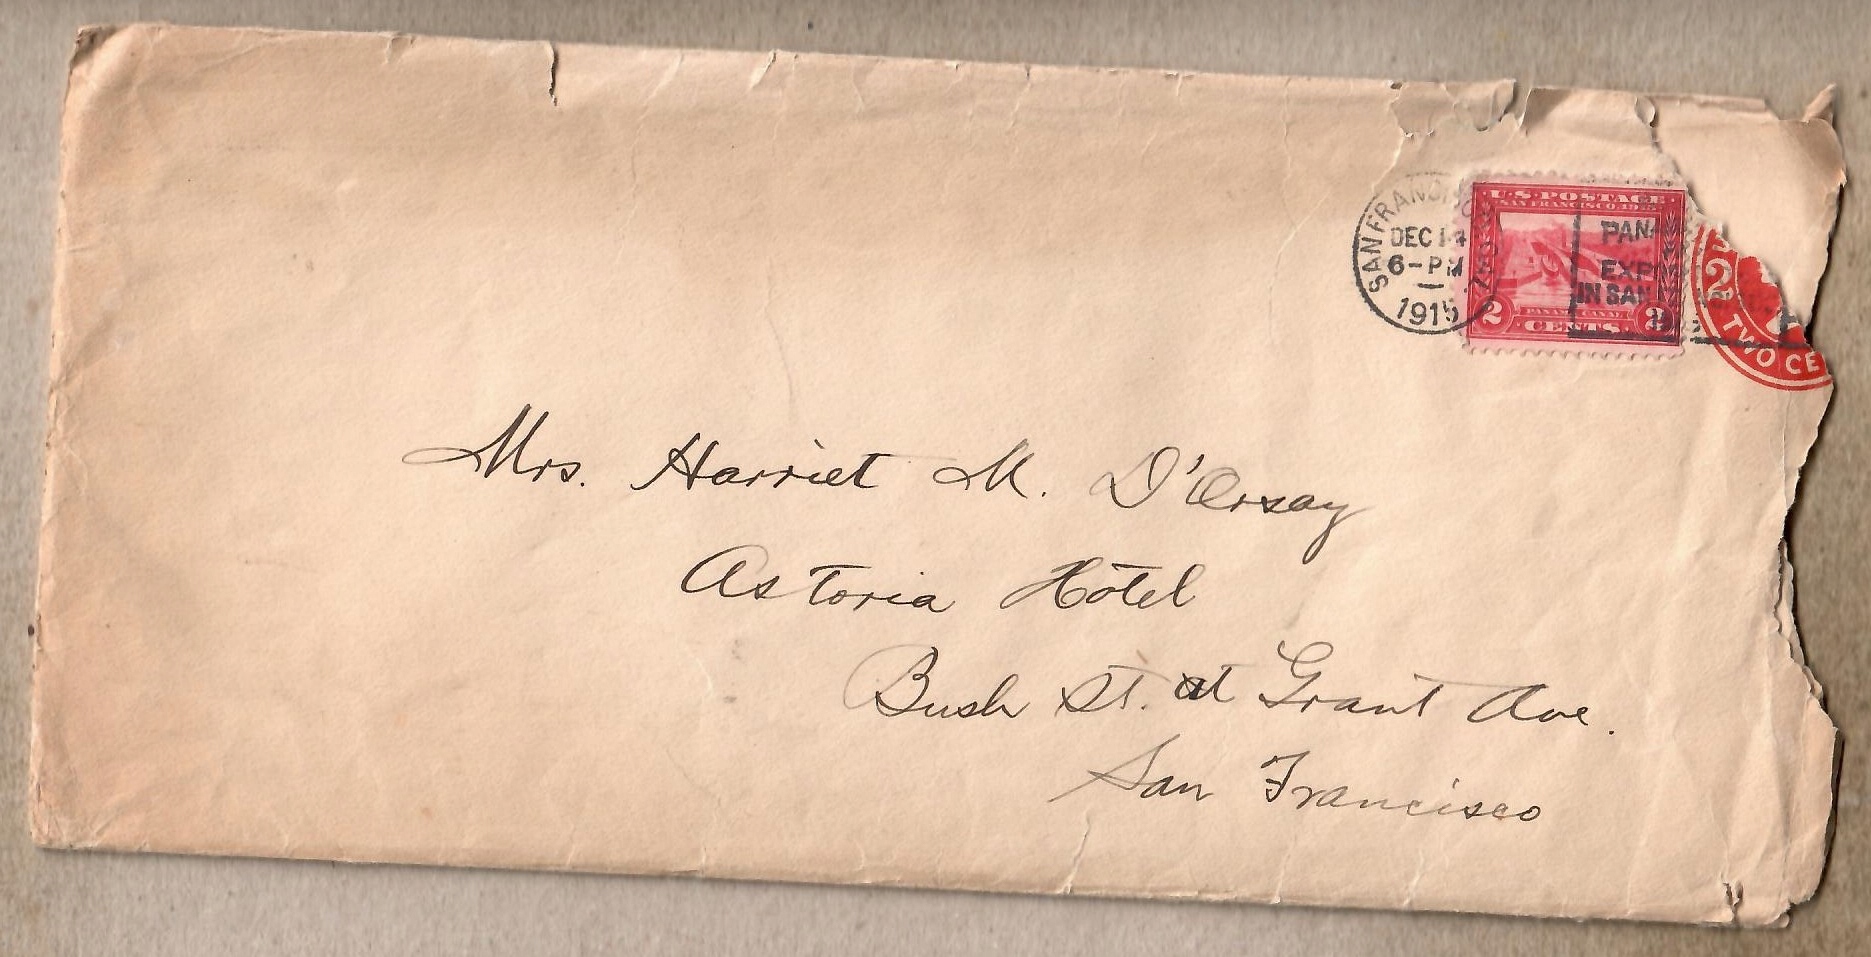 SAN FRANCISCO, CAL.
DEC 14
6-PM
1915
U.S. POSTAGE
SAN FRANCISCO 1915
PAN
EXP
IN SAN
2 PANAMA CANAL 2
CENTS
2
TWO CE
Mrs. Harriet M. D'Orsay
Astoria Hotel
Bush St. at Grant Ave.
San Francisco